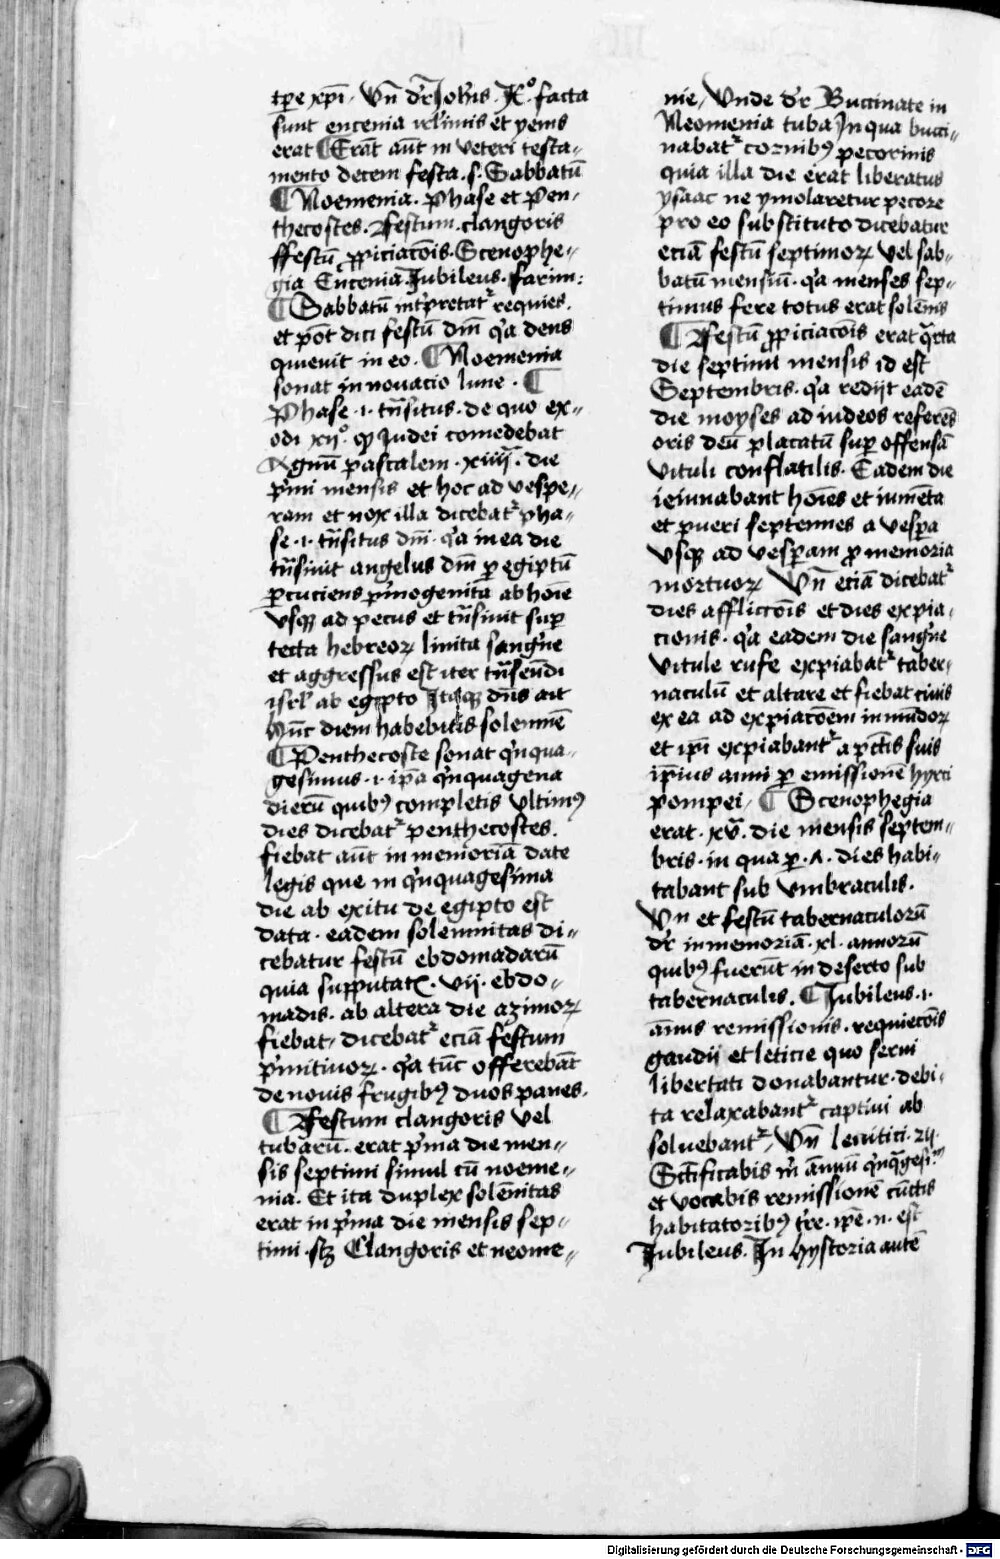 tꝑe xp̄i / Vn̄ dr̄ Joh̄is . X° . facta
sunt encenia irl̄imis et yems
erat ¶ Erāt aūt in veteri testa⸗
mento decem festa . s . Sabbatū
¶ Noemenia . Phase et Pen⸗
thecostes . Festum . clangoris
ffestū ꝓpiciacōis . Scenophe⸗
gia Encenia Jubileus . farim :
¶ Sabbatū int̄pretatᷣ requies .
et pōt dici festū dm̄ q̄a deus
quieuit in eo . ¶ Noemenia
sonat innouacio lune . ¶
Phase .i. tn̄situs . de quo ex⸗
odi xij° . qꝫ Judei comedebāt
Agnū pascalem . xiiij . die
p̄mi mensis et hoc ad vespe⸗
ram et nox illa dicebatᷣ pha⸗
se .i. tn̄situs dm̄ . q̄a in ea die
tn̄siuit angelus dm̄ ꝑ egiptū
ꝑcuciens p̄mogenita ab hoīe
vsqꝫ ad pecus et tn̄siuit suꝑ
tecta hebreoꝝ linita sangⁱne
et aggressus est iter tn̄seūdi
isrl̄ ab egipto Itaqꝫ dn̄s ait
Hūc diem habebitis solennē
¶ Penthecoste sonat qⁱnqua⸗
gesimus .i. ip̄a qⁱnquagena
dierū quibꝰ completis vltimꝰ
dies dicebatᷣ penthecostes .
fiebat aūt in memoriā date
legis que in qⁱnquagesima
die ab exitu de egipto est
data . eadem solemnitas di⸗
cebatur festū ebdomadarū
quia supputatꝭ . vij . ebdo⸗
madis . ab altera die azimoꝝ
fiebat / dicebatᷣ eciā festum
p̄mitiuoꝝ . q̄a tūc offerebāt
de nouis frugibꝰ duos panes .
¶ Festum clangoris vel
tubarū . erat p̄ma die men⸗
sis septimi simul cū noeme⸗
nia . Et ita duplex solēnitas
erat in p̄ma die mensis sep⸗
timi . scꝫ Clangoris et neome⸗
nie / Vnde dr̄ Buccinate in
Neomenia tuba In qua bucci⸗
nabatᷣ cornibꝰ pecorinis
quia illa die erat liberatus
ysaac ne ymolaretur pecore
pro eo substituto dicebatur
eciā festū septimoꝝ vel sab⸗
batū mensiū . q̄a menses sep⸗
timus fere totus erat solēnis
¶ Festū ꝓpiciacōis erat q̄rta
die septimi mensis id est
Septembris . q̄a redijt eadē
die moyses ad iudeos referēs
oris deū placatū suꝑ offensā
vituli conflatilis . Eadem die
ieiunabant hoīes et iumēta
et pueri septennes a vesꝑa
vsqꝫ ad vesꝑam ꝓ memoria
mortuoꝝ Vn̄ eciā dicebatᷣ
dies afflictōis et dies expia⸗
cionis . q̄a eadem die sangⁱne
vitule rufe expiabatᷣ taber⸗
naculū et altare et fiebat cinis
ex ea ad expiacōem inmūdoꝝ
et ip̄i expiabantᷣ a pctīs suis
ip̄ius anni ꝑ emissionē hyrci
pompei / ¶ Scenophegia
erat . xv . die mensis septem⸗
bris . in qua ꝑ . ʌ . dies habi⸗
tabant sub vmbraculis .
Vn̄ et festū tabernaculorū
dr̄ in memoriā . xl . annorū
quibꝰ fuerūt in deserto sub
tabernaculis . ¶ Jubileus .i.
ānus remissionis . requiecōis
gaudii et leticie quo serui
libertati donabantur . debi⸗
ta relaxabantᷣ captiui ab
soluebantᷣ / Vn̄ leuitici . 2ij .
Sct̄ificabis in̄ annū qⁱnq̄gesⁱm
et vocabis remissionē cūctis
habitatoribꝰ tr̄e . ip̄e . n . est
Jubileus . In hystoria autē